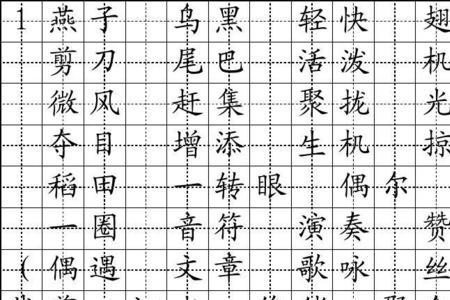 1 燕子 乌黑 轻快 翅
剪刀 尾巴 活泼 机
微风 赶集 聚拢 光
夺目 增添 生机 掠
稻田 一转眼 偶尔
一圈 音符 演奏 赞
(偶遇 文章 歌咏 丝